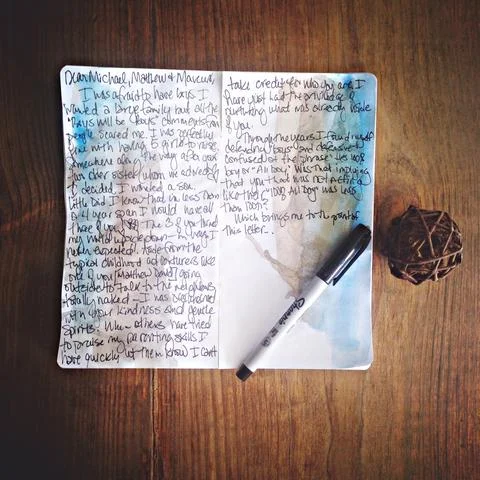 Dear Michael, Matthew & Marcus,
I was afraid to have boys. I
wanted a large family but all the
"Boys will be Boys" comments from
people scared me. I was perfectly
fine with having 5 girls to raise.
Somewhere along the way after your
fun older sister, whom we adored,
I decided I wanted a son.
Little did I know that in less than
a 4 year span I would have all
three of you. The 3 of you turned
my world upside down - in ways I
never expected. Aside from the
typical childhood adventures like
one of you [Matthew David] going
outside to talk to the neighbors
totally naked - I was
with your kindness and gentle
Spirits. When others have tried
to praise my parenting skills I
have quickly let them know I can't
take credit for who you are, I
have just had the privilege of
nurturing what was already inside
of you.
Through the years I found myself
defending "boys" and defensive &
confused at the phrase "He is all
boy or "All Boy". Was that implying
that you that was not acting
like the "100% All Boy" was less
than 100%?
Which brings me to the point of
this letter...
Sharpie